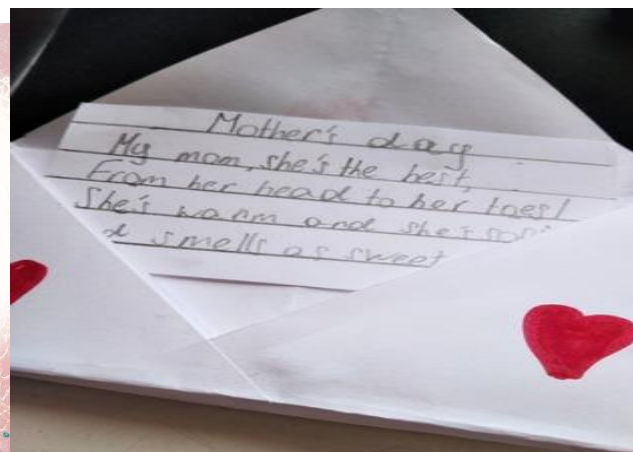 Mother's day
My mom, she's the best,
From her head to her toes!
She's warm and she's
smells as sweet